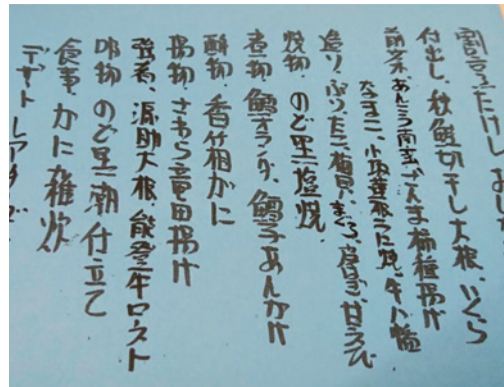 割烹たけし おし
付出し、秋鮭切干し大根、いくら
前菜、あんこう南蛮、ごんま柿種揚げ
なまこ、小坂蓮根うに焼、牛八幡
造り、ぶり、たこ、梅貝、まぐろ、皮はぎ、甘えび
焼物、のど黒塩焼
煮物、鱈オランダ、鱈子あんかけ
酢物、香箱がに
揚物、さわら竜田揚げ
強肴、源助大根、能登牛ロースト
吸物、のど黒潮仕立て
食事、かに雑炊
デザート レアチーズ